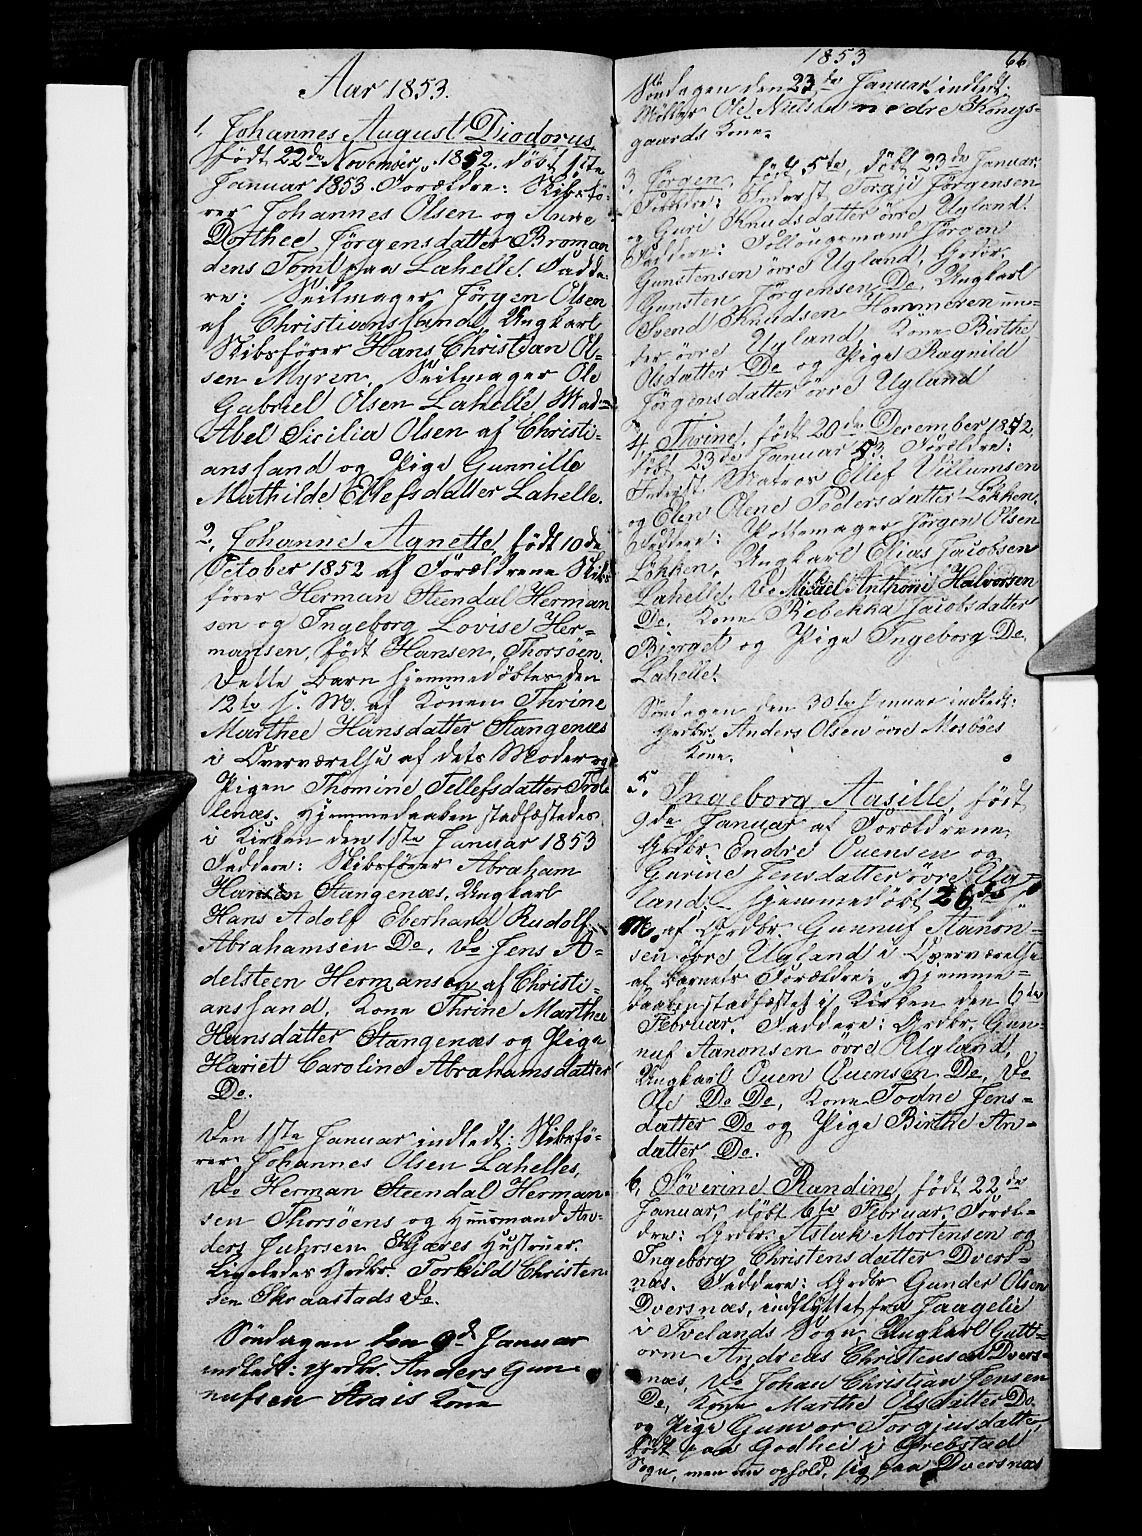 Aar 1853.
1, Johannes August Diodorus,
født 22de November 1852. døbt 1ste
Januar 1853. Forældre: Skibsfø-
rer Johannes Olsen og Anne
Dorthee Jørgensdatter Broman
dens Tomt paa Lahelle. Fadde-
re: Seilmager Jørgen Olsen
af Christiansand, Ungkarl
Skibsfører Hans Christian Ol-
sen Myren, Seilmager Ole
Gabriel Olsen Lahelle Mad=
Abel Sicilia Olsen af Christi-
ansand og Pige Gunnille
Mathilde Ellefsdatter Lahelle.
2, Johanne Agnette født 10de
October 1852 af Forældrene Skibs
fører Herman Steendal Herman
sen og Ingeborg Lovise Her-
mansen, født Hansen, Thorsøen.
Dette Barn hjemmedøbtes den
12te s. M. af Konen Thrine
Marthee Hansdatter Stangenæs
i Overværelse af dets Moder og
Pigen Thomine Tellefsdatter Trol
lenæs. Hjemmedaaben stadfæstedes
i Kirken den 1ste Januar 1853
Faddere: Skibsfører Abraham
Hansen Stangenæs, Ungkarl
Hans Adolf Eberhard Rudolf
Abrahamsen Do, Do Jens A-
delsteen Hermansen af Christi-
ansand, Kone Thrine Marthee
Hansdatter Stangenæs og Pige
Hariet Caroline Abrahamsdatter
Do.
Den 1ste Januar indledt: Skibsfø-
rer Johannes Olsen Lahelles
Do Herman Steendal Herman-
sen Thorsøens og Huusmand An-
ders Juhrsen Kjæres Hustruer.
Ligeledes Grdbr. Torkild Christen
sen Skraastads Do.
Søndagen den 9de Januar
indledt: Grdbr. Anders Gun-
nufsen Arais Kone
1853
66
Søndagen den 23de Januar indledt:
Møller Ole Nielsen nedre Kongs-
gaards Kone.
3, Jørgen, født 5te, døbt 23de Januar
Forældre: Inderst Torgje Jørgensen
og Guri Knudsdatter øvre Ugland.
Faddere: Follougemand Jørgen
Gunstensen øvre Ugland, Grdbr.
Gunsten Jørgensen Do, Ungkarl
Svend Knudsen Hommeren un-
der øvre Ugland, Kone Birthe
Olsdatter Do og Pige Ragnild
Jørgensdatter øvre Ugland
4, Thrine, født 20de December 1852,
døbt 23de Januar 53. Forældre:
Inderst, Matros Ellef Villumsen
og Elen Olene Pedersdatter Løkken.
Faddere: Pottemager Jørgen Olsen
Løkken, Ungkarl Elias Jacobsen
Lahelle, Do Mikael Anthoni Halvorsen
Do, Kone Rebekka Jacobsdatter
Bjerget og Pige Ingeborg Do
Lahelle.
Søndagen den 30te Januar indledt:
Grdbr. Anders Olsen øvre Mosbøes
Kone.
5. Ingeborg Aasille, født
9de Januar af Forældrene
Grdbr. Endre Ouensen og
Gurine Jensdatter øvre Ug-
land. Hjemmedøbt 26de s.
M. af Grdbr. Gunnuf Aanon-
sen øvre Ugland i Overværelse
af Barnets Forældre. Hjemme-
daaben stadfæstet i Kirken den 6te
Februar. Faddere: Grdbr. Gun-
nuf Aanonsen øvre Ugland,
Ungkarl Ouen Ouensen Do, Do
Ole Do Do, Kone Todne Jens-
datter Do og Pige Birthe An-
datter Do.
6, Søverine Randine, født 22de
Januar, døbt 6te Februar. Foræl-
dre: Grdbr. Aslak Mortensen og
Ingeborg Christensdatter Dvers-
næs. Faddere: Grdbr Gunder Olsen
Dversnæs, indflyttet fra Jaagelie
i Ivelands Sogn, Ungkarl Gutt-
orm Andreas Christensen Dvers-
næs, Do Johan Christian Jensen
Do, Kone Marthe Olsdatter Do
og Pige Gunvor Torgjusdatter,
født paa Godhei i Grebstad
Sogn, men nu ophold. sig paa Dversnæs